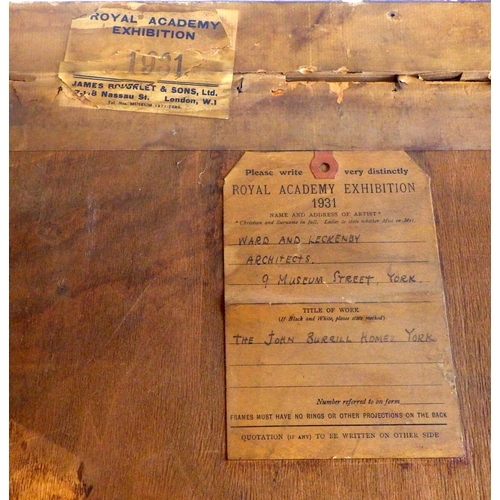 ROYAL ACADEMY
EXHIBITION
1931
JAMES & SONS, Ltd.
Nassau St. London, W.1
Tel. Nos. MUSEUM
Please write very distinctly
ROYAL ACADEMY EXHIBITION
1931
NAME AND ADDRESS OF ARTIST*
*Christian and Surname in full. Ladies to state whether Miss or Mrs.
WARD AND LECKENBY
ARCHITECTS.
9 MUSEUM STREET. YORK
TITLE OF WORK
(If Black and White, please state method)
THE JOHN BURRILL HOMES YORK
Number referred to on form
FRAMES MUST HAVE NO RINGS OR OTHER PROJECTIONS ON THE BACK
QUOTATION (IF ANY) TO BE WRITTEN ON OTHER SIDE